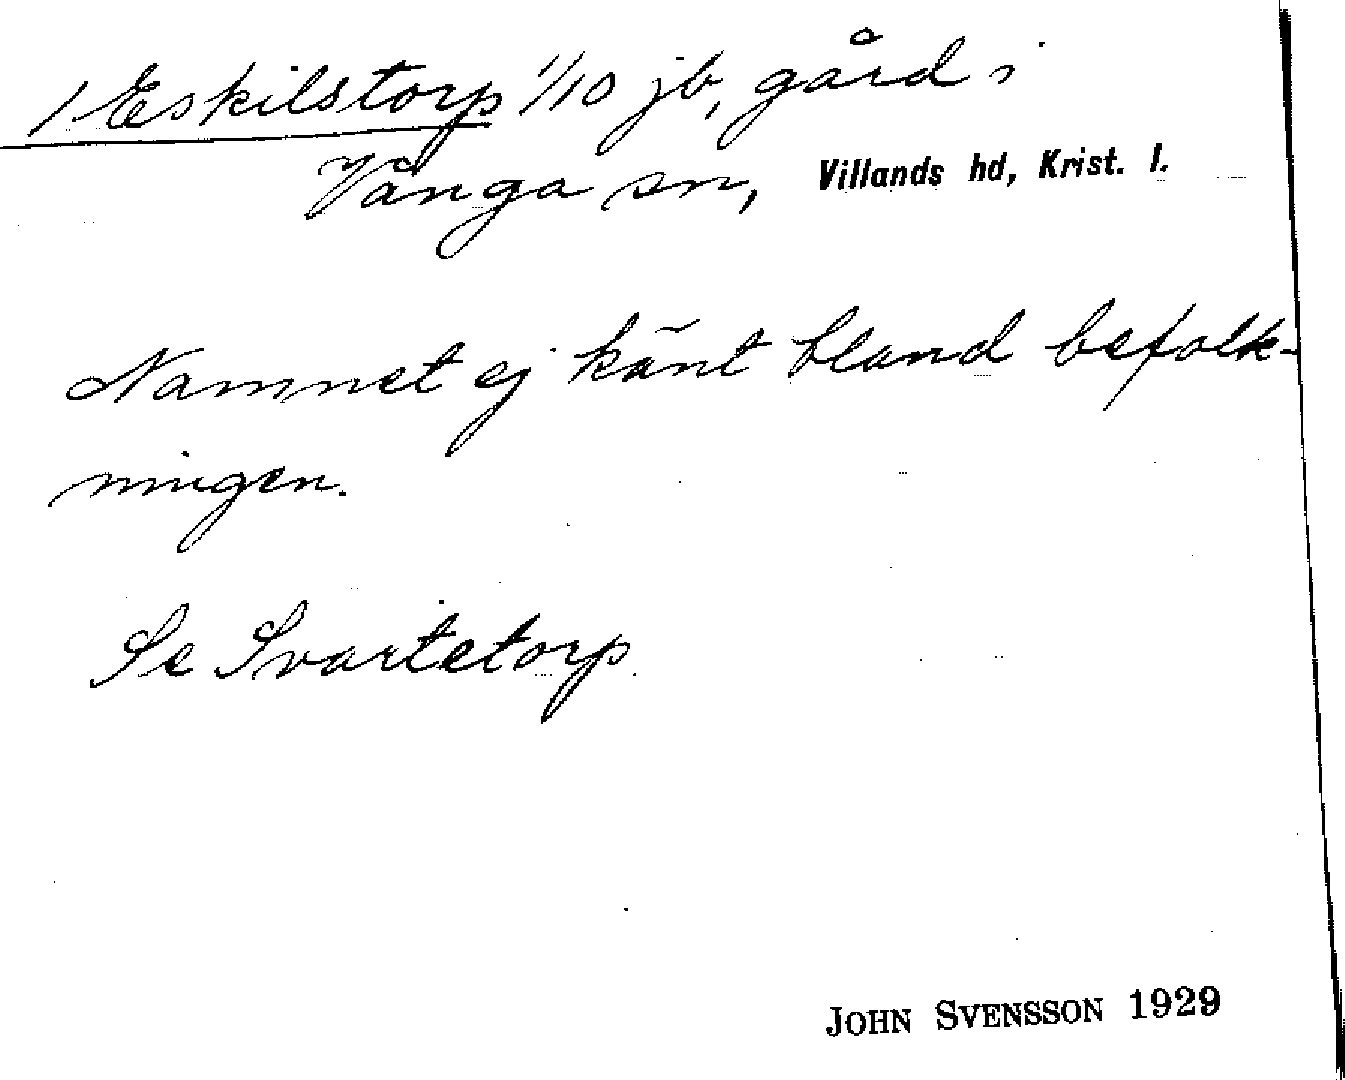 / Eskilstorp 1/10 jb, gård i
Vånga sn, Villands hd, Krist. l.
Namnet ej känt bland befolk-
ningen.
Se Svartetorp.
JOHN SVENSSON 1929